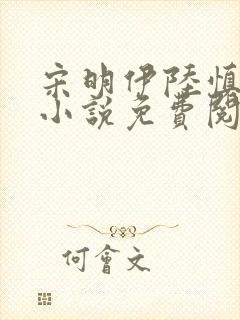 宋明伊陸慎
小說免費閱
何會文